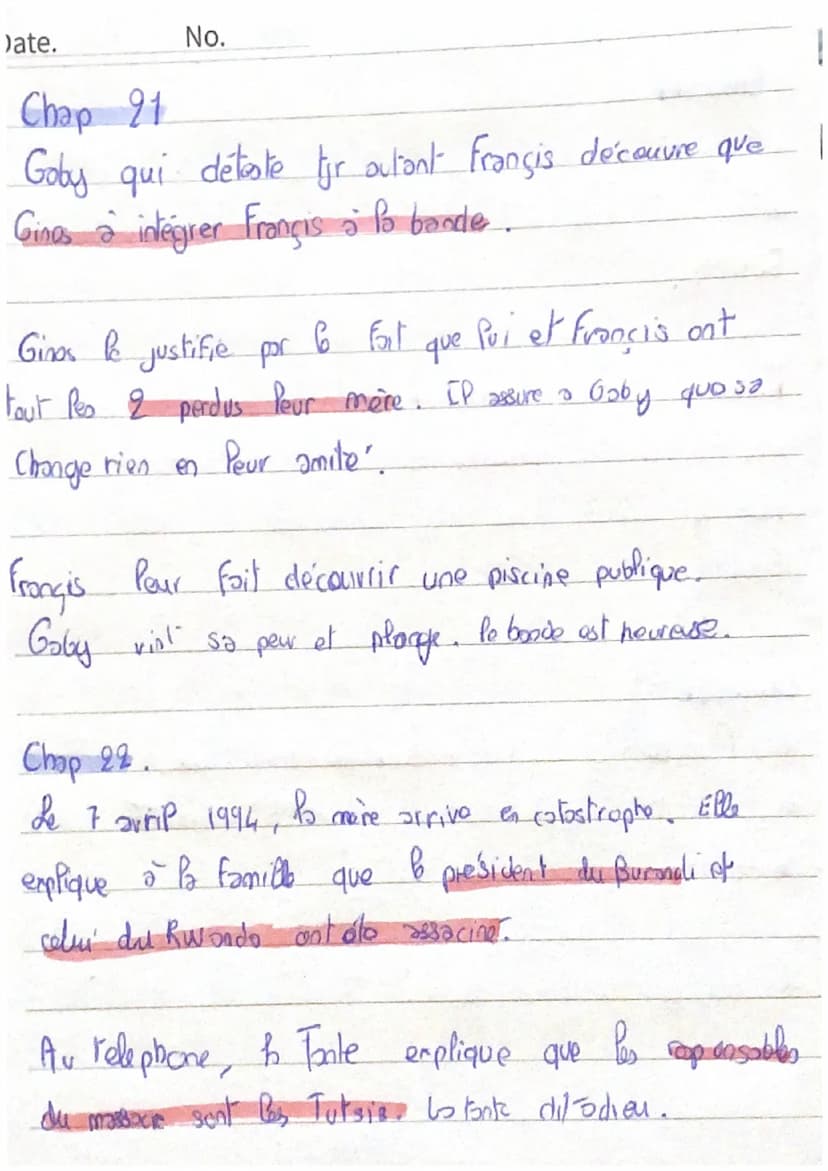 Date. No.
Chap 21
Gaby qui déteste tjr autant Françis découvre que
Ginos à intégrer Françis à la bande.
Ginos le justifie par le fait que lui et Françis ont
tout les 2 perdus leur mère. Il assure a Gaby que sa
Change rien en leur amité.
Françis leur fait découvrir une piscine publique.
Gaby vint sa peur et plonge. la bande est heureuse.
Chap 22.
Le 7 avril 1994, la mère arrive en catastrophe. Elle
explique à la famille que le président du Burundi et
celui du Rwanda ont été assaciner.
Au telephone, la Tante explique que les responsables
du massacre sont les Tutsis. La tante dit adieu.